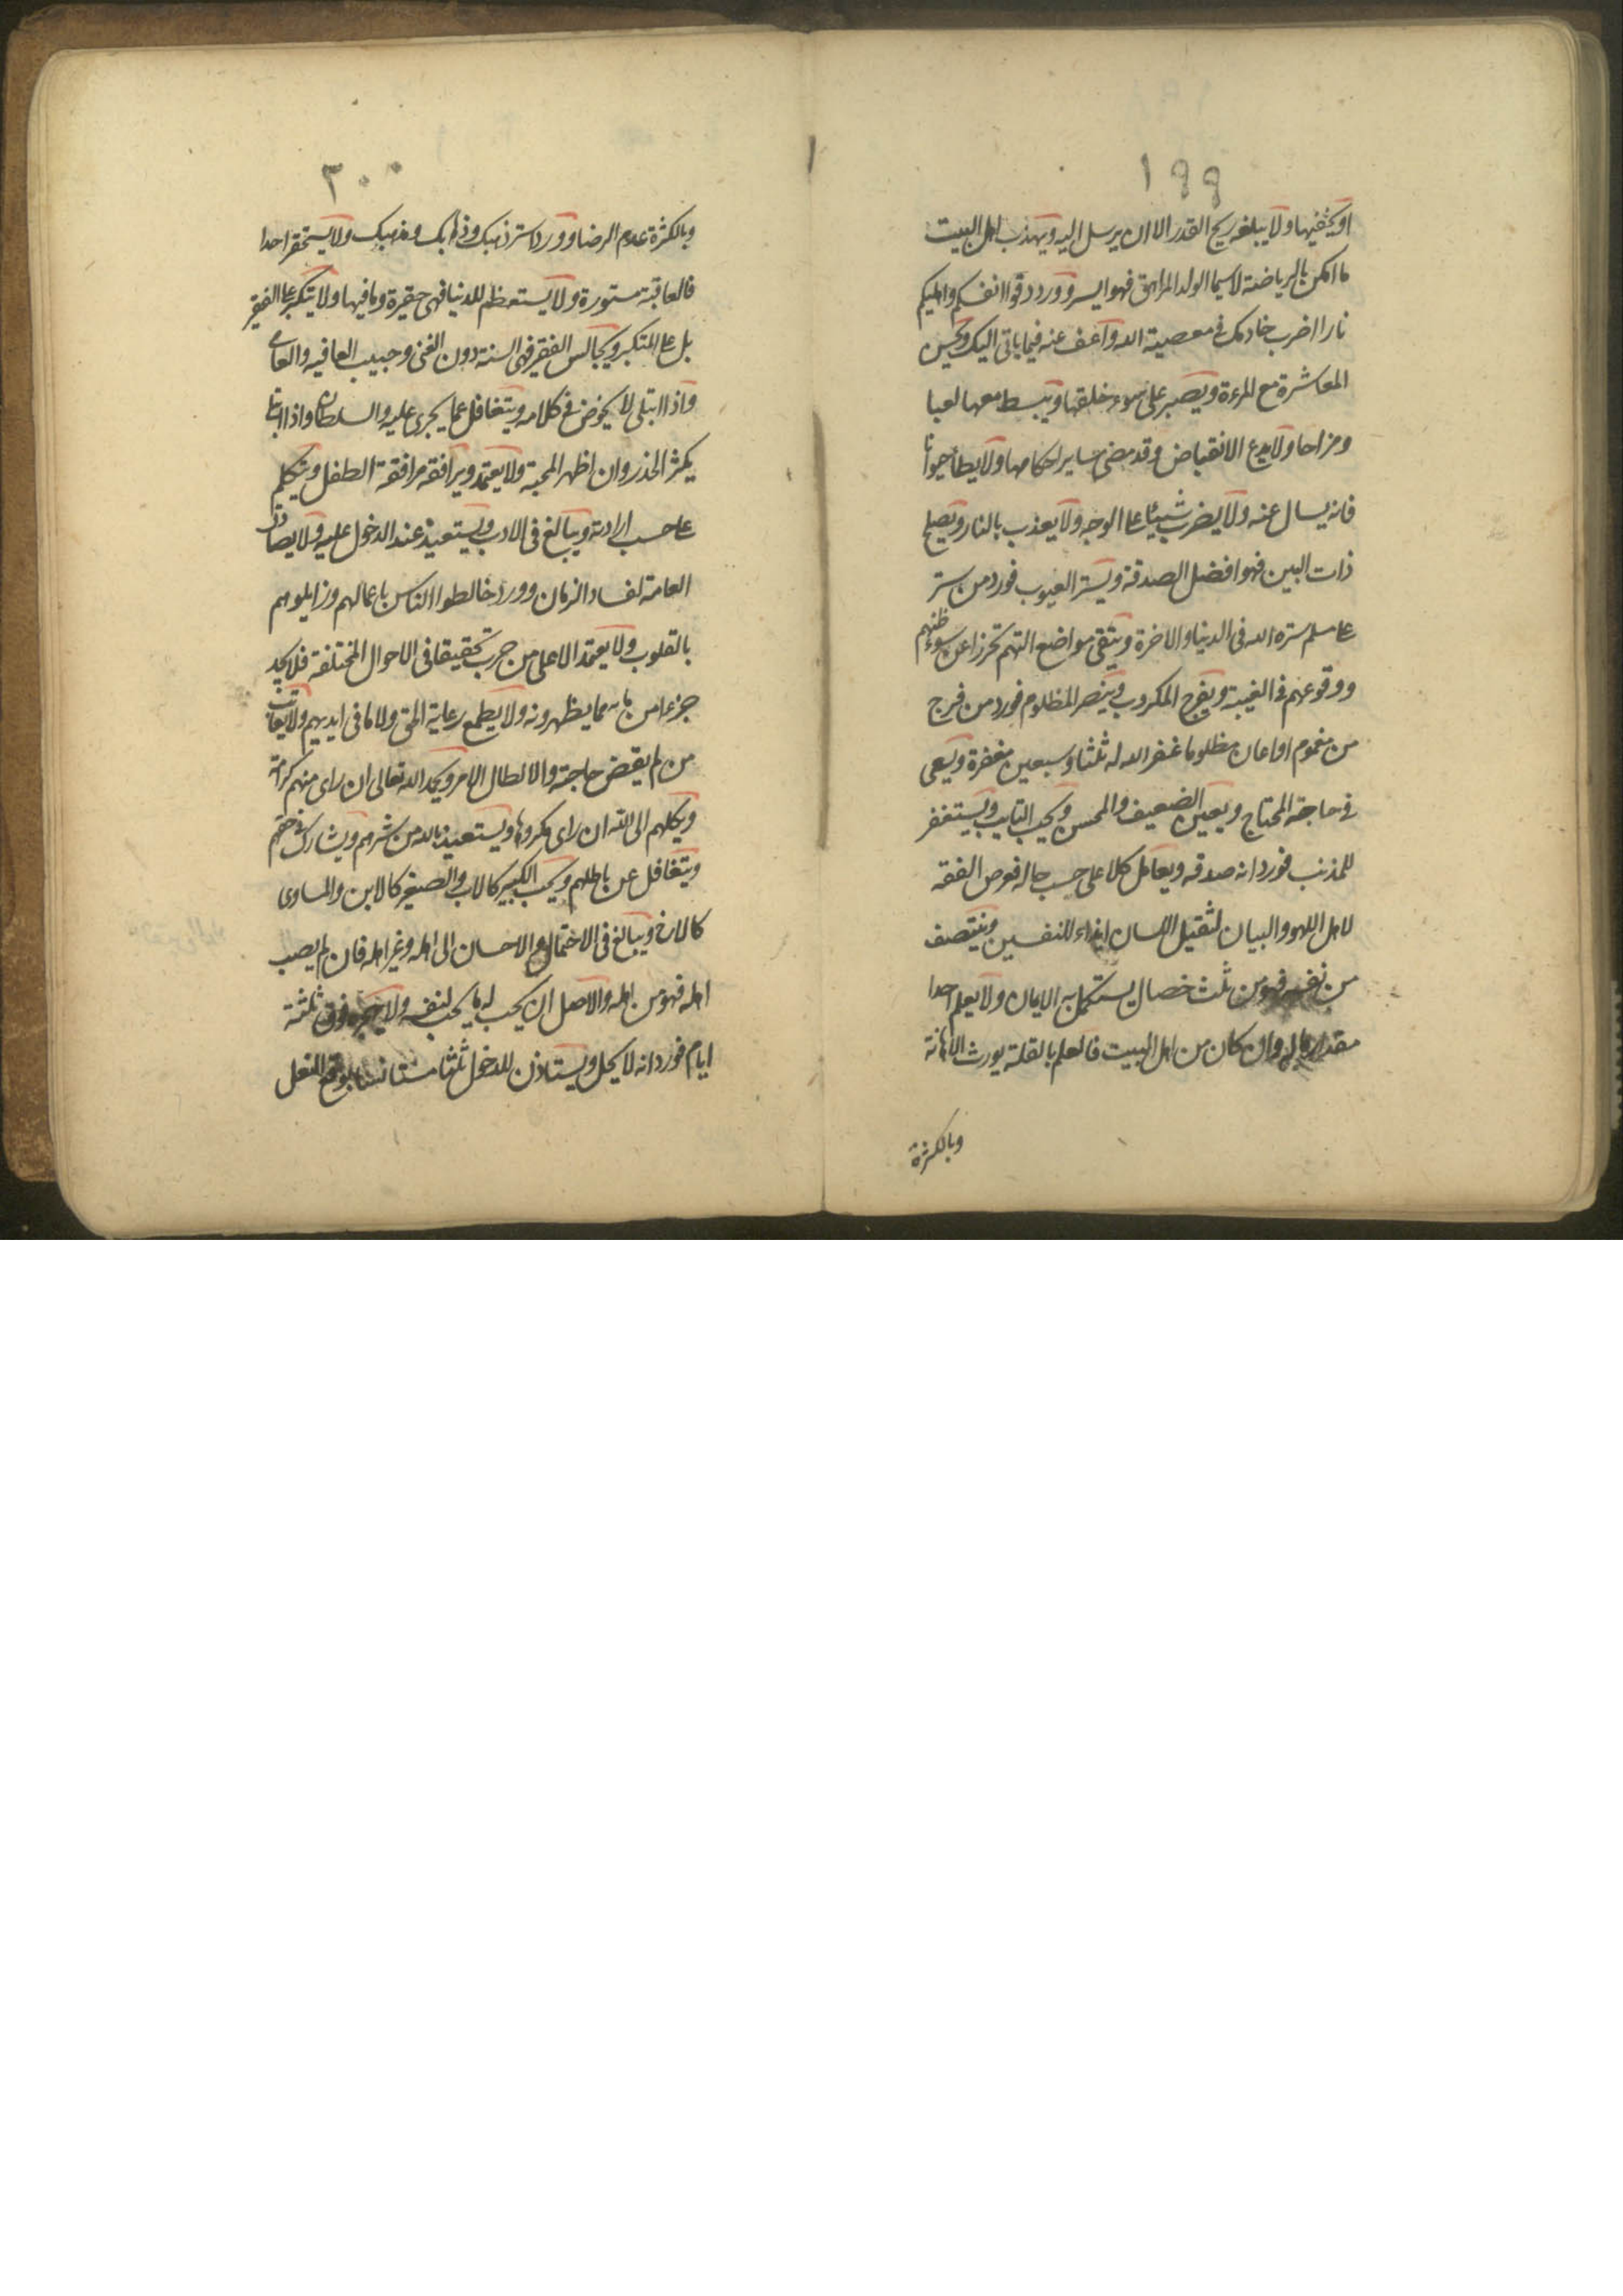 ١٩٩
او يخفيها ولا يبلغه ريح القدر الا ان يرسل اليه ويهذب اهل البيت
ما امكن بالرياضة لا سيما الولد المراهق فهو ايسر وورد قوا انفسكم واهليكم
نارا اضرب خادمك في معصية الله واعف عنه فيما ياتي اليك ويحسن
المعاشرة مع المرءة ويصبر على سوء خلقها ويبسط معها لعبا
ومزاحا ولا يدع الانقباض وقد مضى ساير احكامها ولا يطأ حيوانا
فانه يسال عنه ولا يضرب شيئا على الوجه ولا يعذب بالنار ويصلح
ذات البين فهو افضل الصدقة ويستر العيوب فورد من ستر
على مسلم ستره الله في الدنيا والاخرة ويتقى مواضع التهم تحرزا عن سوء ظنهم
ووقوعهم في الغيبة ويفرج المكروب وينصر المظلوم فورد من فرج
من مغموم او اعان مظلوما غفر الله له ثلثا وسبعين مغفرة ويسعى
في حاجة المحتاج ويعين الضعيف والمحسن ويحب التايب ويستغفر
للمذنب فورد انه صدقه ويعامل كلا على حسب حاله فوص الفقه
لاهل اللهو والبيان لثقيل اللسان ايذاء للنفسين وينتصف
من نفسه فهو من ثلث خصال يستكمل بهن الايمان ولا يعلم احدا
مقدار ماله وان كان من اهل البيت فالعلم بالقلة يورث الاهانة
وبالكثرة
٢٠٠
وبالكثرة عدم الرضا وورد استر ذهبك وذهابك ومذهبك ولا يستحقر احدا
فالعاقبة مستورة ولا يستعظم للدنيا فهي حقيرة وما فيها ولا يتكبر على الفقير
بل على المتكبر ويجالس الفقير فهي السنة دون الغنى وحبيب العافيه والعامي
واذا ابتلى لا يخوض في كلامه ويتغافل عما يجرى عليه والسلطان واذا ابتلى
يكثر الحذر وان اظهر المحبة ولا يعتمد ويرافقه مرافقة الطفل ويتكلم
على حسب ارادته ويبالغ في الادب ويستعيذ عند الدخول عليه ولا يصادق
العامة لفساد الزمان وورد خالطوا الناس باعمالهم وزايلوهم
بالقلوب ولا يعتمد الا على من جرب تحقيقا في الاحوال المختلفة فلا يجد
جزءا من مائه مما يظهرونه ولا يطمع رعاية الحق ولا ما في ايديهم ولا يعاتب
من لم يقض حاجته والا لطال الامر ويحمد الله تعالى ان راى منهم كرامة
ويكلهم الى الله ان راى مكروها ويستعيذ بالله من شرهم ويشارك في حقهم
ويتغافل عن باطلهم ويحب الكبير كالاب والصغير كالابن والمساوى
كالاخ ويبالغ في الاحتمال مع الاحسان الى اهله وغير اهله فان لم يصب
اهله فهو من اهله والاصل ان يحب له ما يحب لنفسه ولا يهجره فوق ثلثة
ايام فورد انه لا يحل ويستاذن للدخول ثلثا مستانسا بوقع النعل